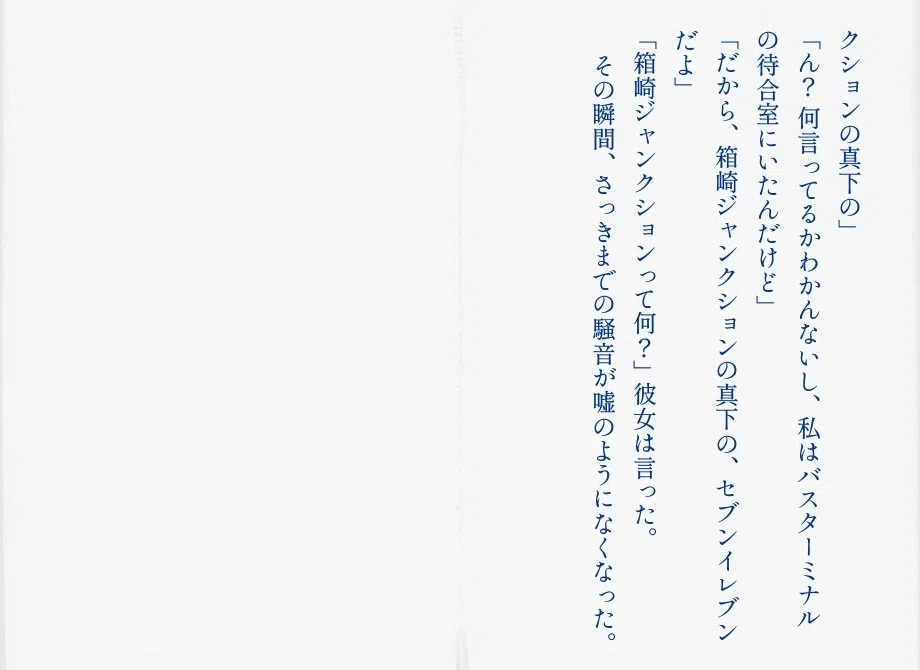 クションの真下の」
「ん？ 何言ってるかわかんないし、私はバスターミナル
の待合室にいたんだけど」
「だから、箱崎ジャンクションの真下の、セブンイレブン
だよ」
「箱崎ジャンクションって何？」彼女は言った。
その瞬間、さっきまでの騒音が嘘のようになくなった。